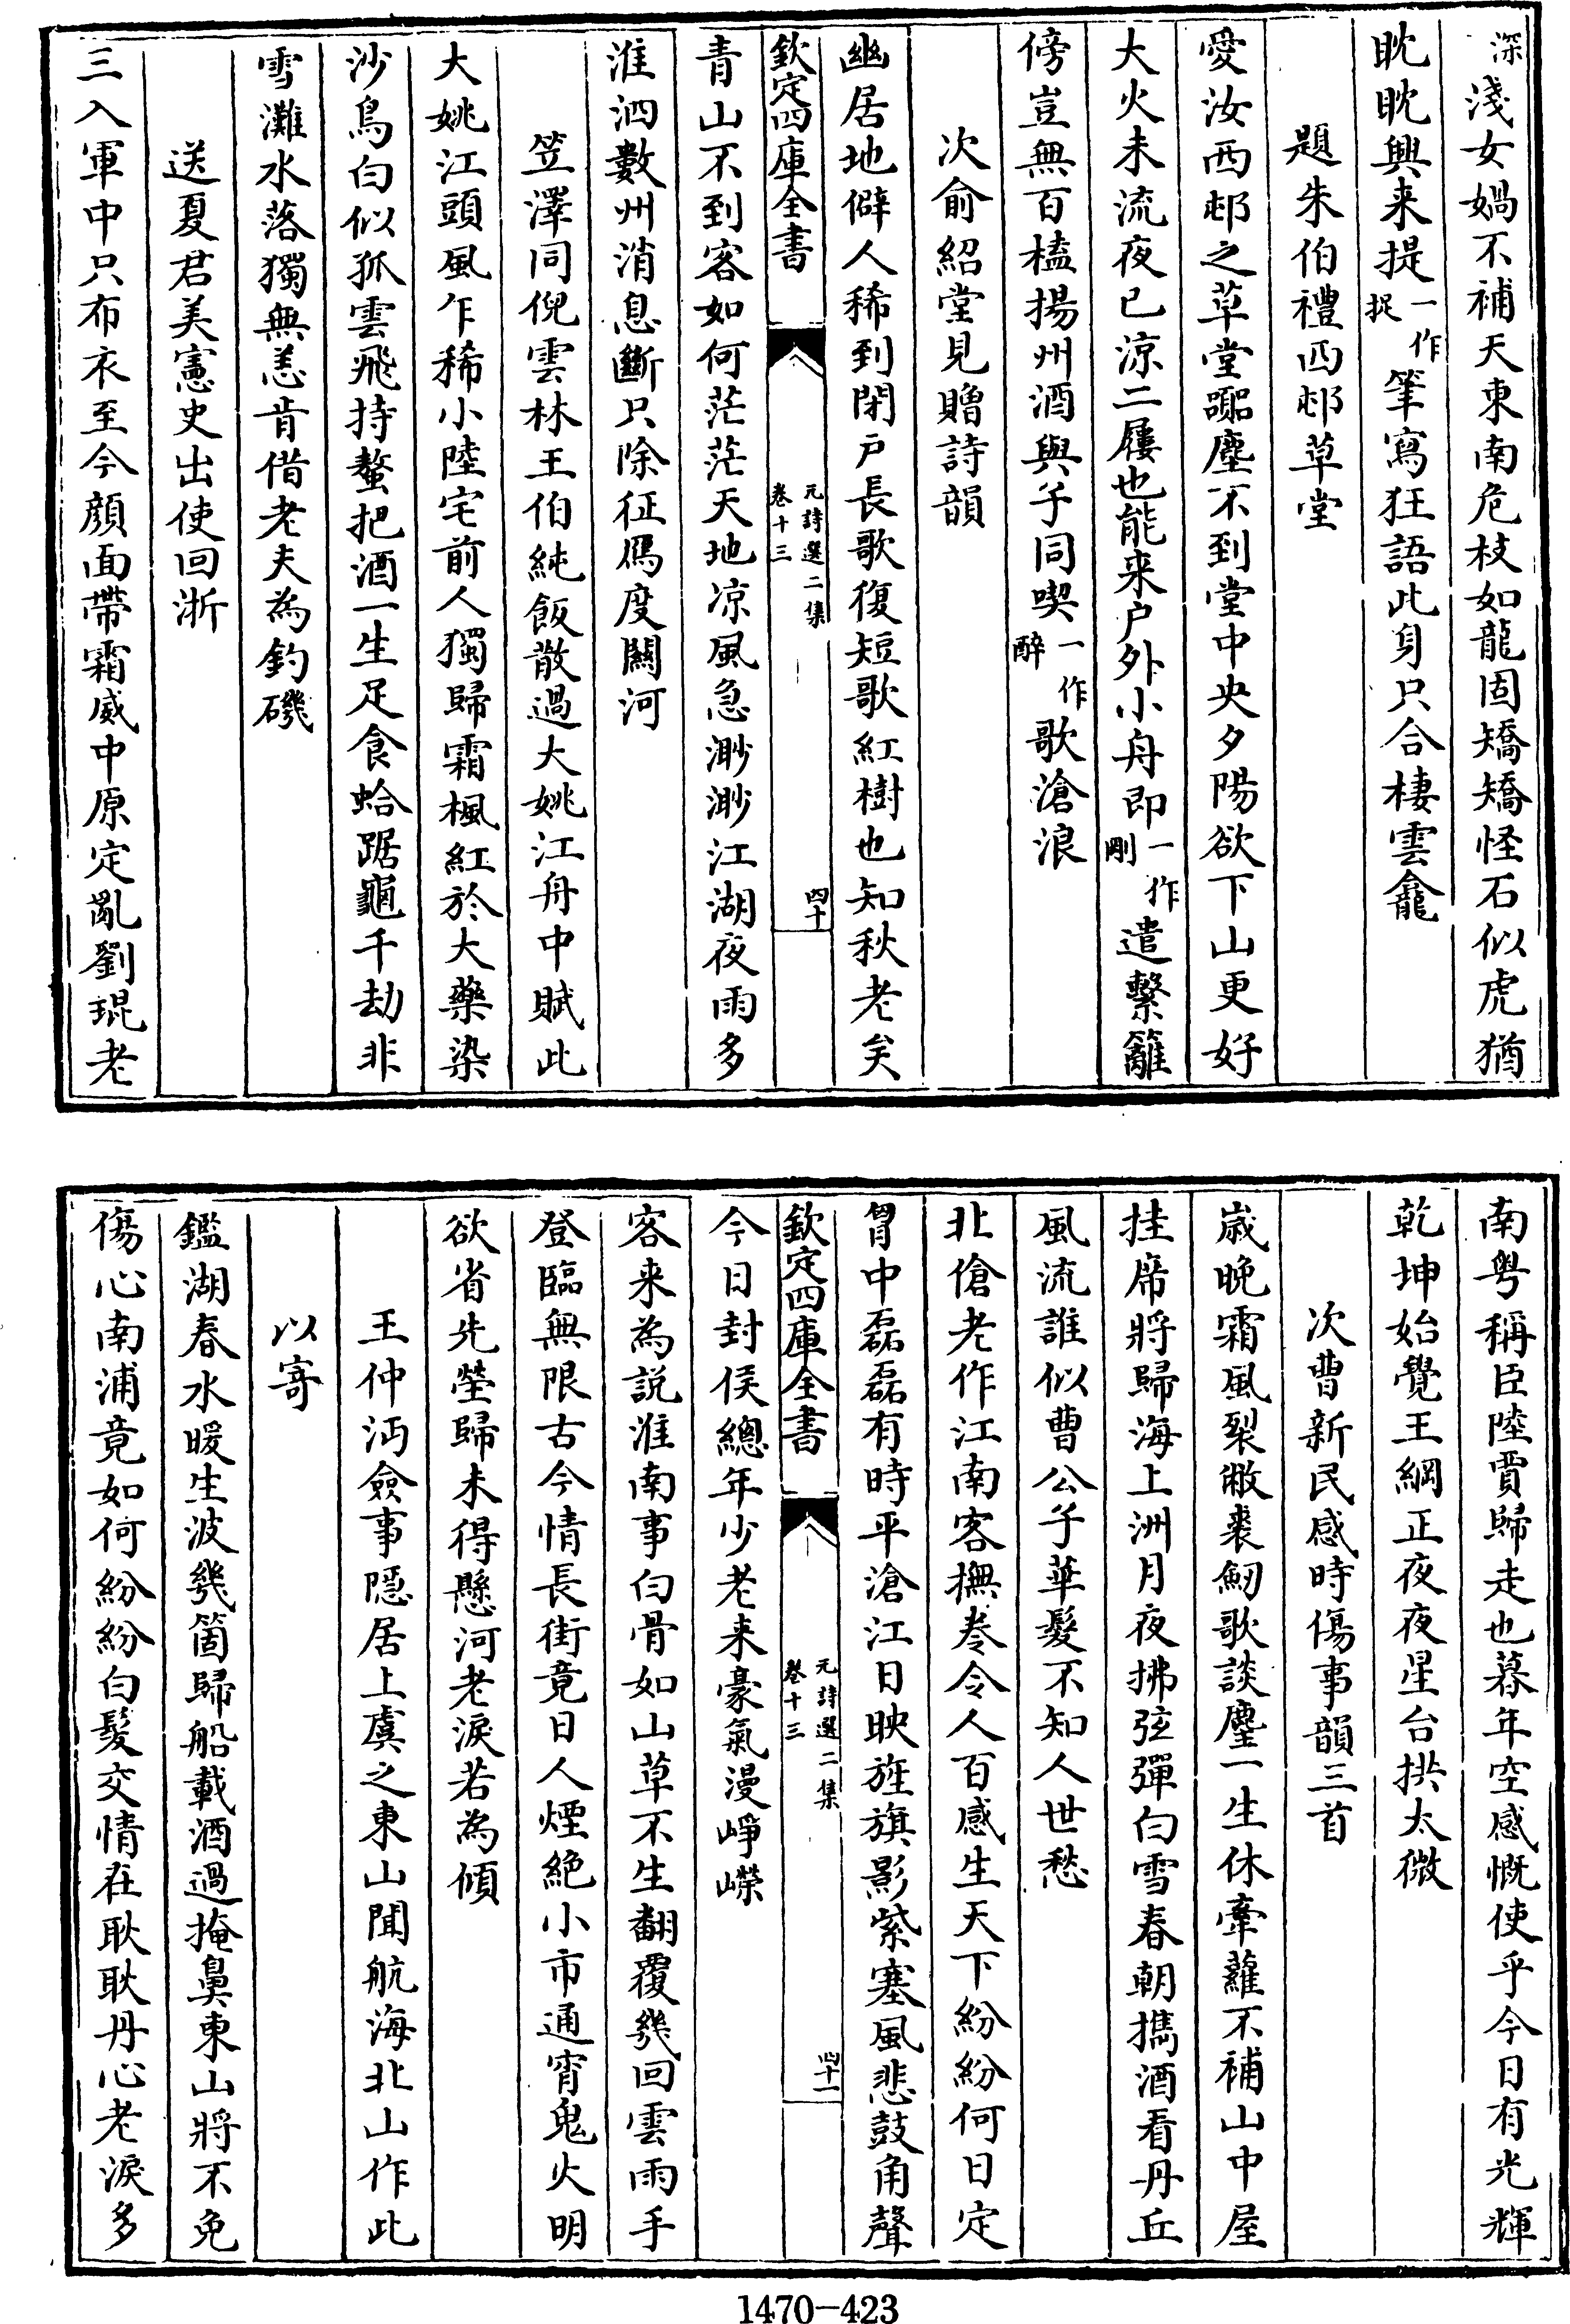 深淺女媧不補天東南危枝如龍固矯矯怪石似虎猶
眈眈興来提一作捉筆寫狂語此身只合棲雲龕
題朱伯禮西邨草堂
愛汝西邨之草堂囂塵不到堂中央夕陽欲下山更好
大火未流夜已凉二屨也能来户外小舟即一作剛遣繫籬
傍豈無百榼揚州酒與子同喫一作醉歌滄浪
次俞紹堂見贈詩韻
幽居地僻人稀到閉戶長歌復短歌紅樹也知秋老矣
欽定四庫全書
元詩選二集
卷十三
四十
青山不到客如何茫茫天地凉風急渺渺江湖夜雨多
淮泗數州消息斷只除征鴈度關河
笠澤同倪雲林王伯純飯散過大姚江舟中賦此
大姚江頭風乍稀小陸宅前人獨歸霜楓紅於大藥染
沙鳥白似孤雲飛持螯把酒一生足食蛤踞龜千劫非
雪灘水落獨無恙肯借老夫為釣磯
送夏君美憲史出使回浙
三入軍中只布衣至今顔面帶霜威中原定亂劉琨老
南粤稱臣陸賈歸走也暮年空感慨使乎今日有光輝
乾坤始覺王綱正夜夜星台拱太微
次曹新民感時傷事韻三首
歲晩霜風裂敝裘劒歌談麈一生休牽蘿不補山中屋
挂席將歸海上洲月夜拂弦彈白雪春朝擕酒看丹丘
風流誰似曹公子華髮不知人世愁
北傖老作江南客撫卷令人百感生天下紛紛何日定
胷中磊磊有時平滄江日映旌旗影紫塞風悲鼓角聲
欽定四庫全書
元詩選二集
卷十三
四十一
今日封侯總年少老来豪氣漫崢嶸
客来為説淮南事白骨如山草不生翻覆幾回雲雨手
登臨無限古今情長街竟日人煙絶小市通宵鬼火明
欲省先塋歸未得懸河老淚若為傾
王仲沔僉事隠居上虞之東山聞航海北山作此
以寄
鑑湖春水暖生波幾箇歸船載酒過掩鼻東山將不免
傷心南浦竟如何紛紛白髮交情在耿耿丹心老淚多
1470-423